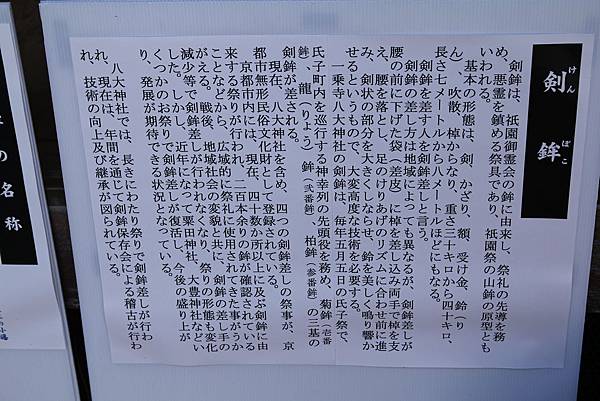 剣鉾
けん
ぼこ
剣鉾は、祇園御霊会の鉾に由来し、祭礼の先導を務
め、悪霊を鎮める祭具であり、祇園祭の山鉾の原型とも
いわれる。
基本の形態は、剣、かざり、額、受け金、鈴（り
ん）、吹散、棹からなり、重さ三十キロから四十キロ、
長さ七メートルから八メートルほどにもなる。
剣鉾を差す人を剣鉾差しと言う。
剣鉾の差し方は地域によっても異なるが、剣鉾差しが
腰の前に下げた袋（差皮）に棹を差し込み両手で棹を支
え、腰を落とし、足のけりあげのリズムに合わせ前に進
み、剣状の部分を大きくしならせ、鈴を美しく鳴り響か
せるというもので、大変高度な技術を必要する。
一乗寺八大神社の剣鉾は、毎年五月五日の氏子祭で、
氏子町内を巡行する神幸列の先頭役を務め、菊鉾（壱番
鉾）、龍（りょう）鉾（弐番鉾）、柏鉾（参番鉾）の三基の
剣鉾が差される。
現在、八大神社を含め、四つの剣鉾差しの祭事が、京
都市無形民俗文化財として登録されている。
京都市内には、現在、四十数か所以上に及ぶ剣鉾に由
来する祭りが行われ、二百本余りの鉾が確認されている
ことなどから、広域的に祭礼に使用されてきた事がうか
がえる。戦後、地域社会の変貌と共に、剣鉾の差し手の
減少等で剣鉾差しが行われなくなり、祭りの形態も変化
した。しかし、近年になって粟田神社、大豊神社などい
くつかのお祭りで剣鉾差しが復活し、今後の盛り上が
り、発展が期待できる状況となっている。
八大神社では、長きにわたり祭りで剣鉾差しが行わ
れ、現在は、年間を通じて剣鉾保存会による稽古が行わ
れ、技術の向上及び継承が図られている。
の名称